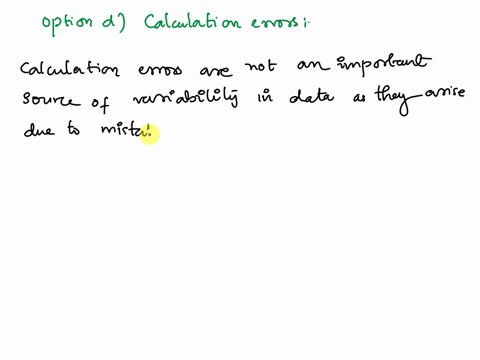 option d) Calculation errors:
Calculation errors are not an important
source of variability in data as they arise
due to mista